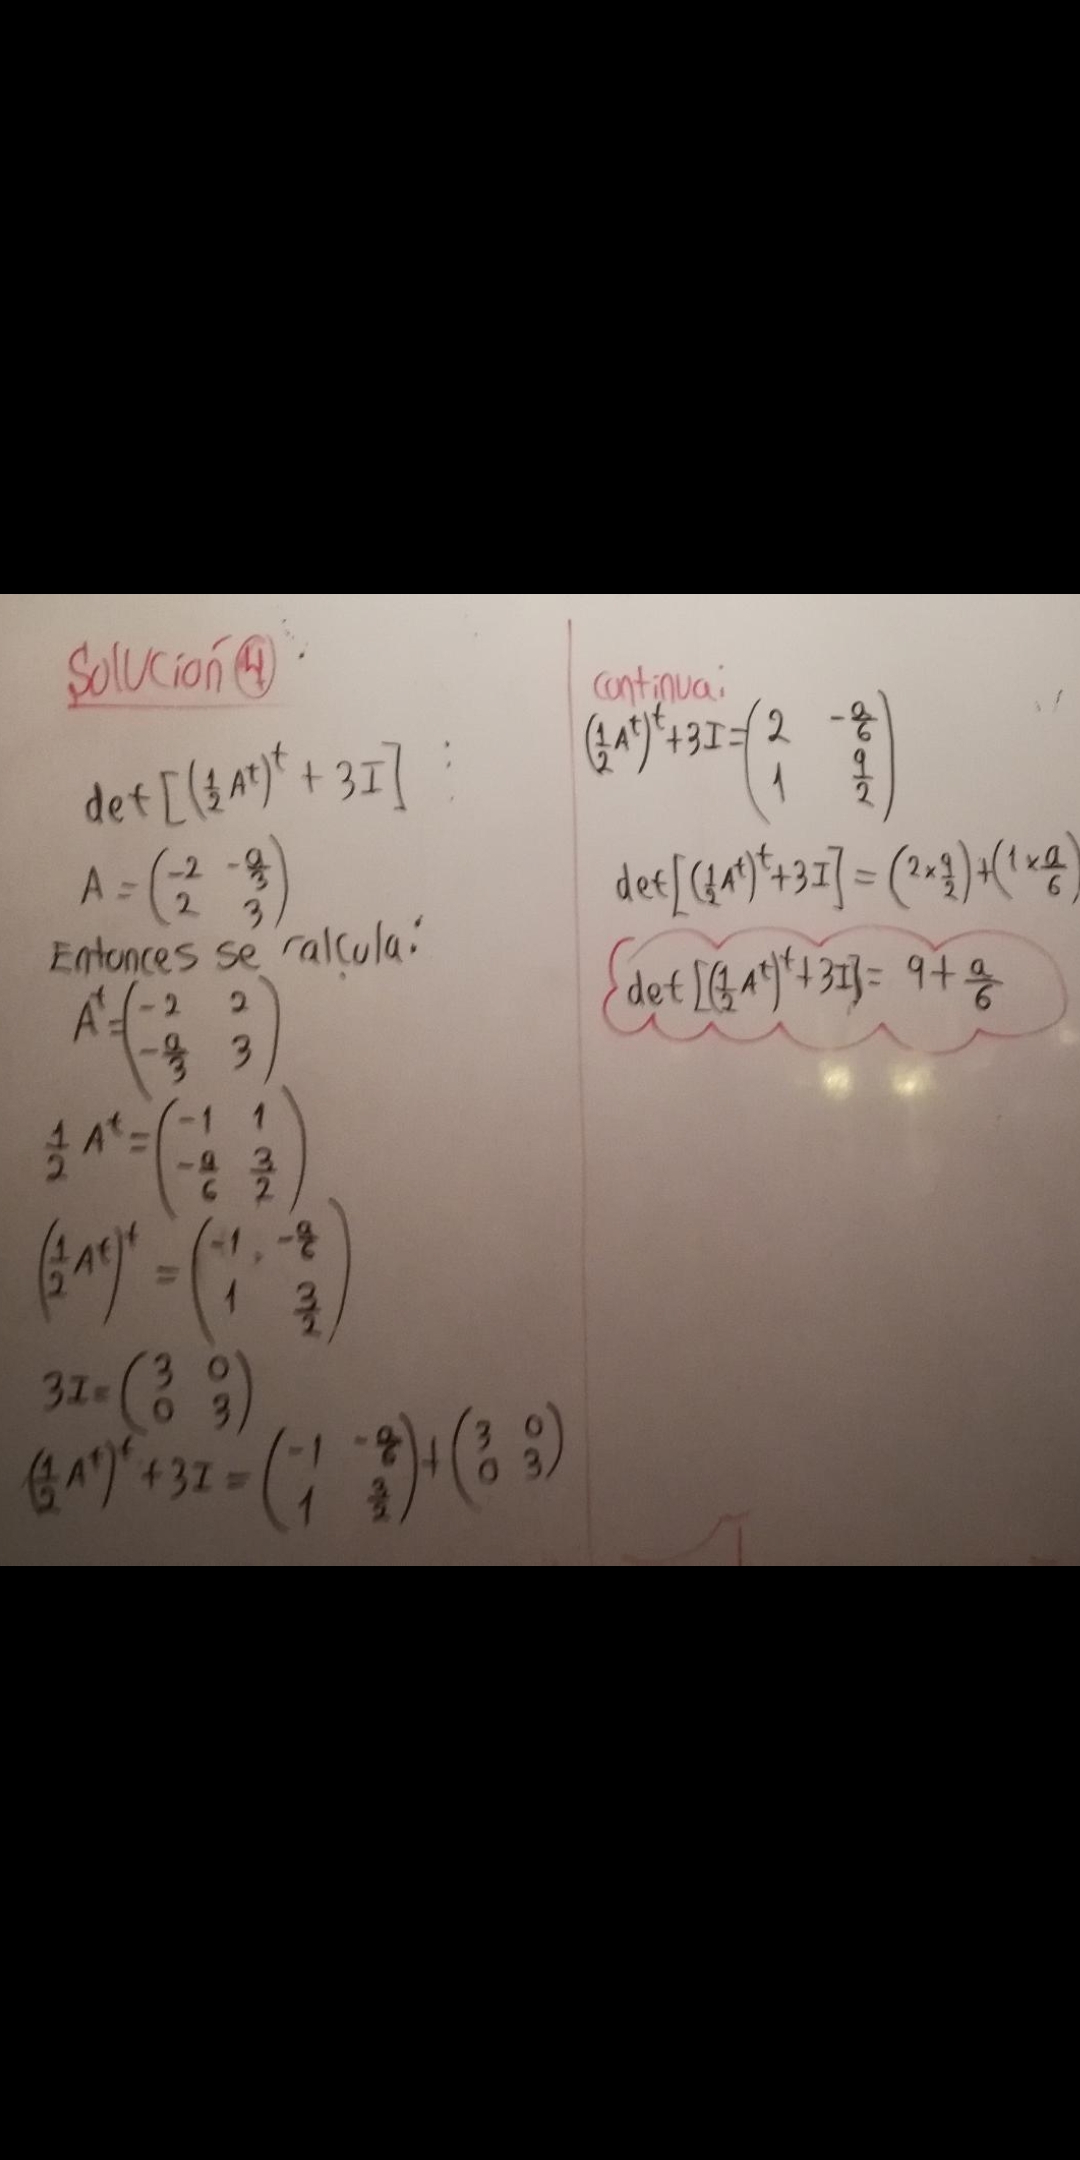 Solución ④:
det[(½Aᵗ)ᵗ + 3I] :
A = (-2 -a/3; 2 3)
Entonces se calcula:
Aᵗ = (-2 2; -a/3 3)
½ Aᵗ = (-1 1; -a/6 3/2)
(½ Aᵗ)ᵗ = (-1 -a/6; 1 3/2)
3I = (3 0; 0 3)
(½ Aᵗ)ᵗ + 3I = (-1 -a/6; 1 3/2) + (3 0; 0 3)
continua:
(½Aᵗ)ᵗ + 3I = (2 -a/6; 1 9/2)
det[(½Aᵗ)ᵗ + 3I] = (2 × 9/2) + (1 × a/6)
det[(½Aᵗ)ᵗ + 3I] = 9 + a/6